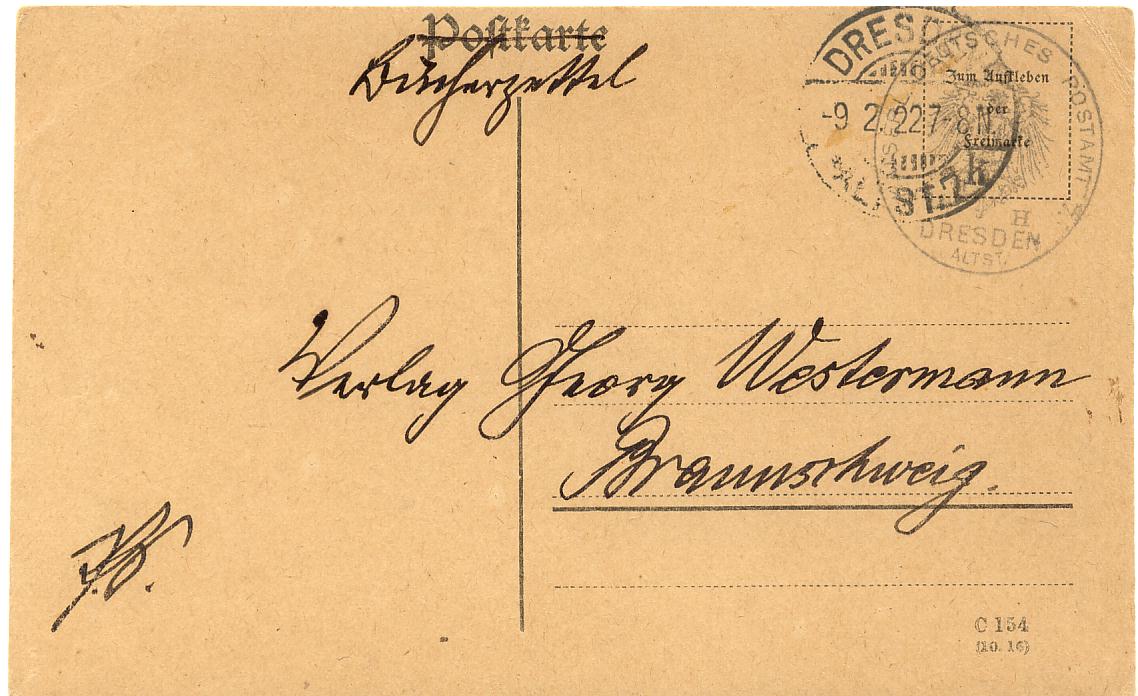 Postkarte
Bücherzettel
DRESDEN
-9 2.22 7-8N.
ALTST. 7 k
KAISERL. DEUTSCHES POSTAMT
H
DRESDEN
ALTST.
Zum Aufkleben
der
Freimarke
Verlag Georg Westermann
Braunschweig.
C 154
(10. 16)